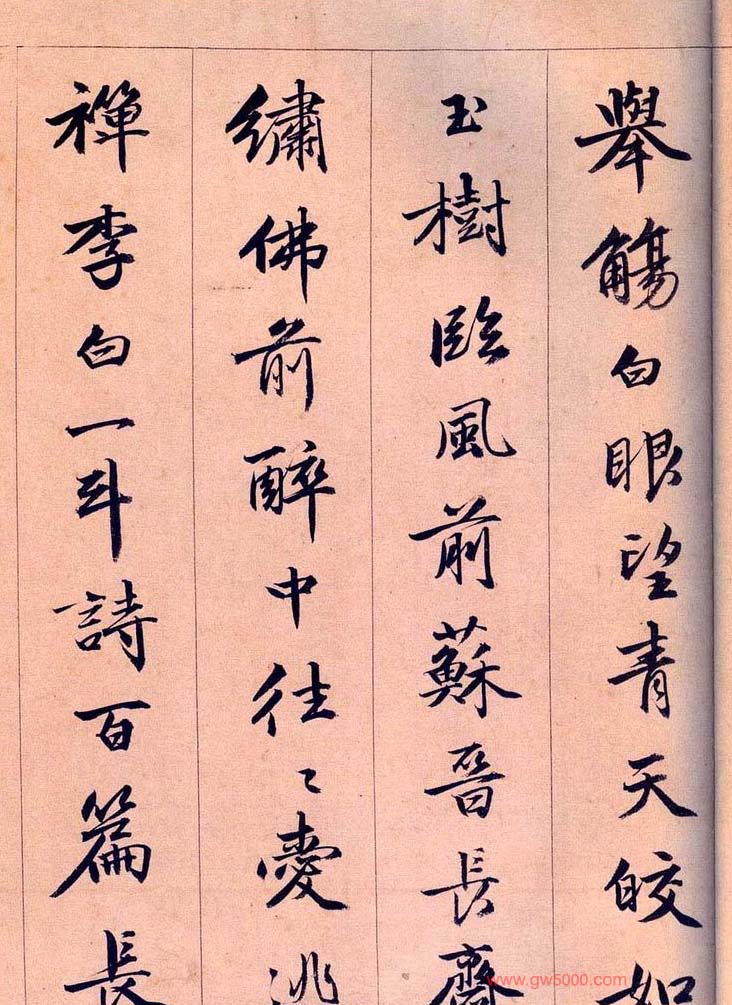 舉觴白眼望青天皎如
玉樹臨風前蘇晉長齋
繡佛前醉中往〻愛逃
禪李白一斗詩百篇長
www.gw5000.com